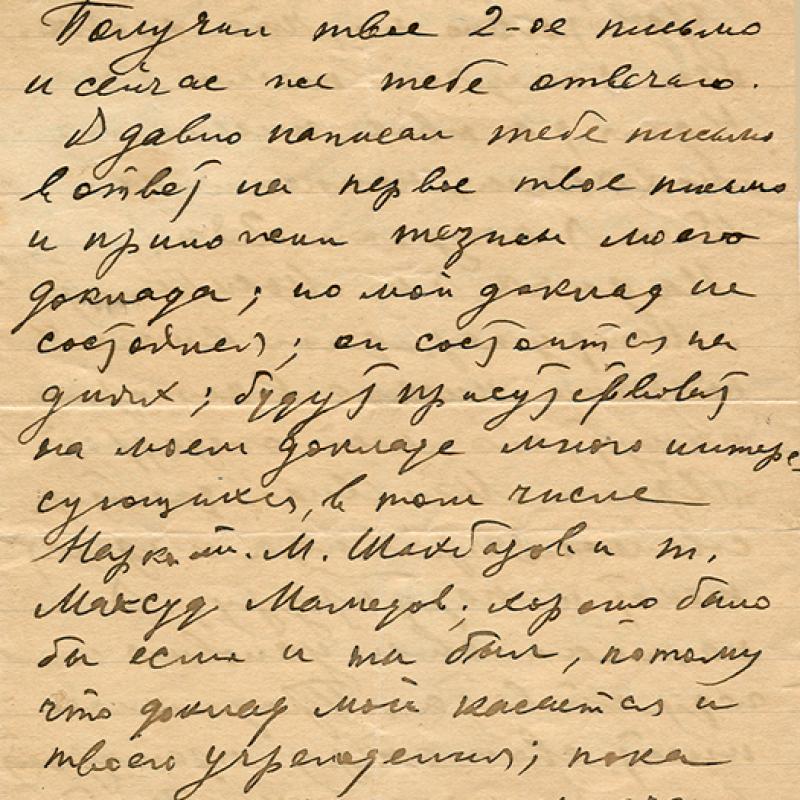 Получил твое 2-ое письмо
и сейчас же тебе отвечаю.
Я давно написал тебе письмо
в ответ на первое твое письмо
и приложени тезисы моего
доклада; но мой доклад не
состоялся; он состоится на
днях; будут присутствоват
на моем докладе много интере
сующихся, в том числе
Нарком. М. Шахбазов и т.
Максуд Мамедов; хорошо было
бы если и ты был, потому
что доклад мой касается и
твоего учреждения; пока